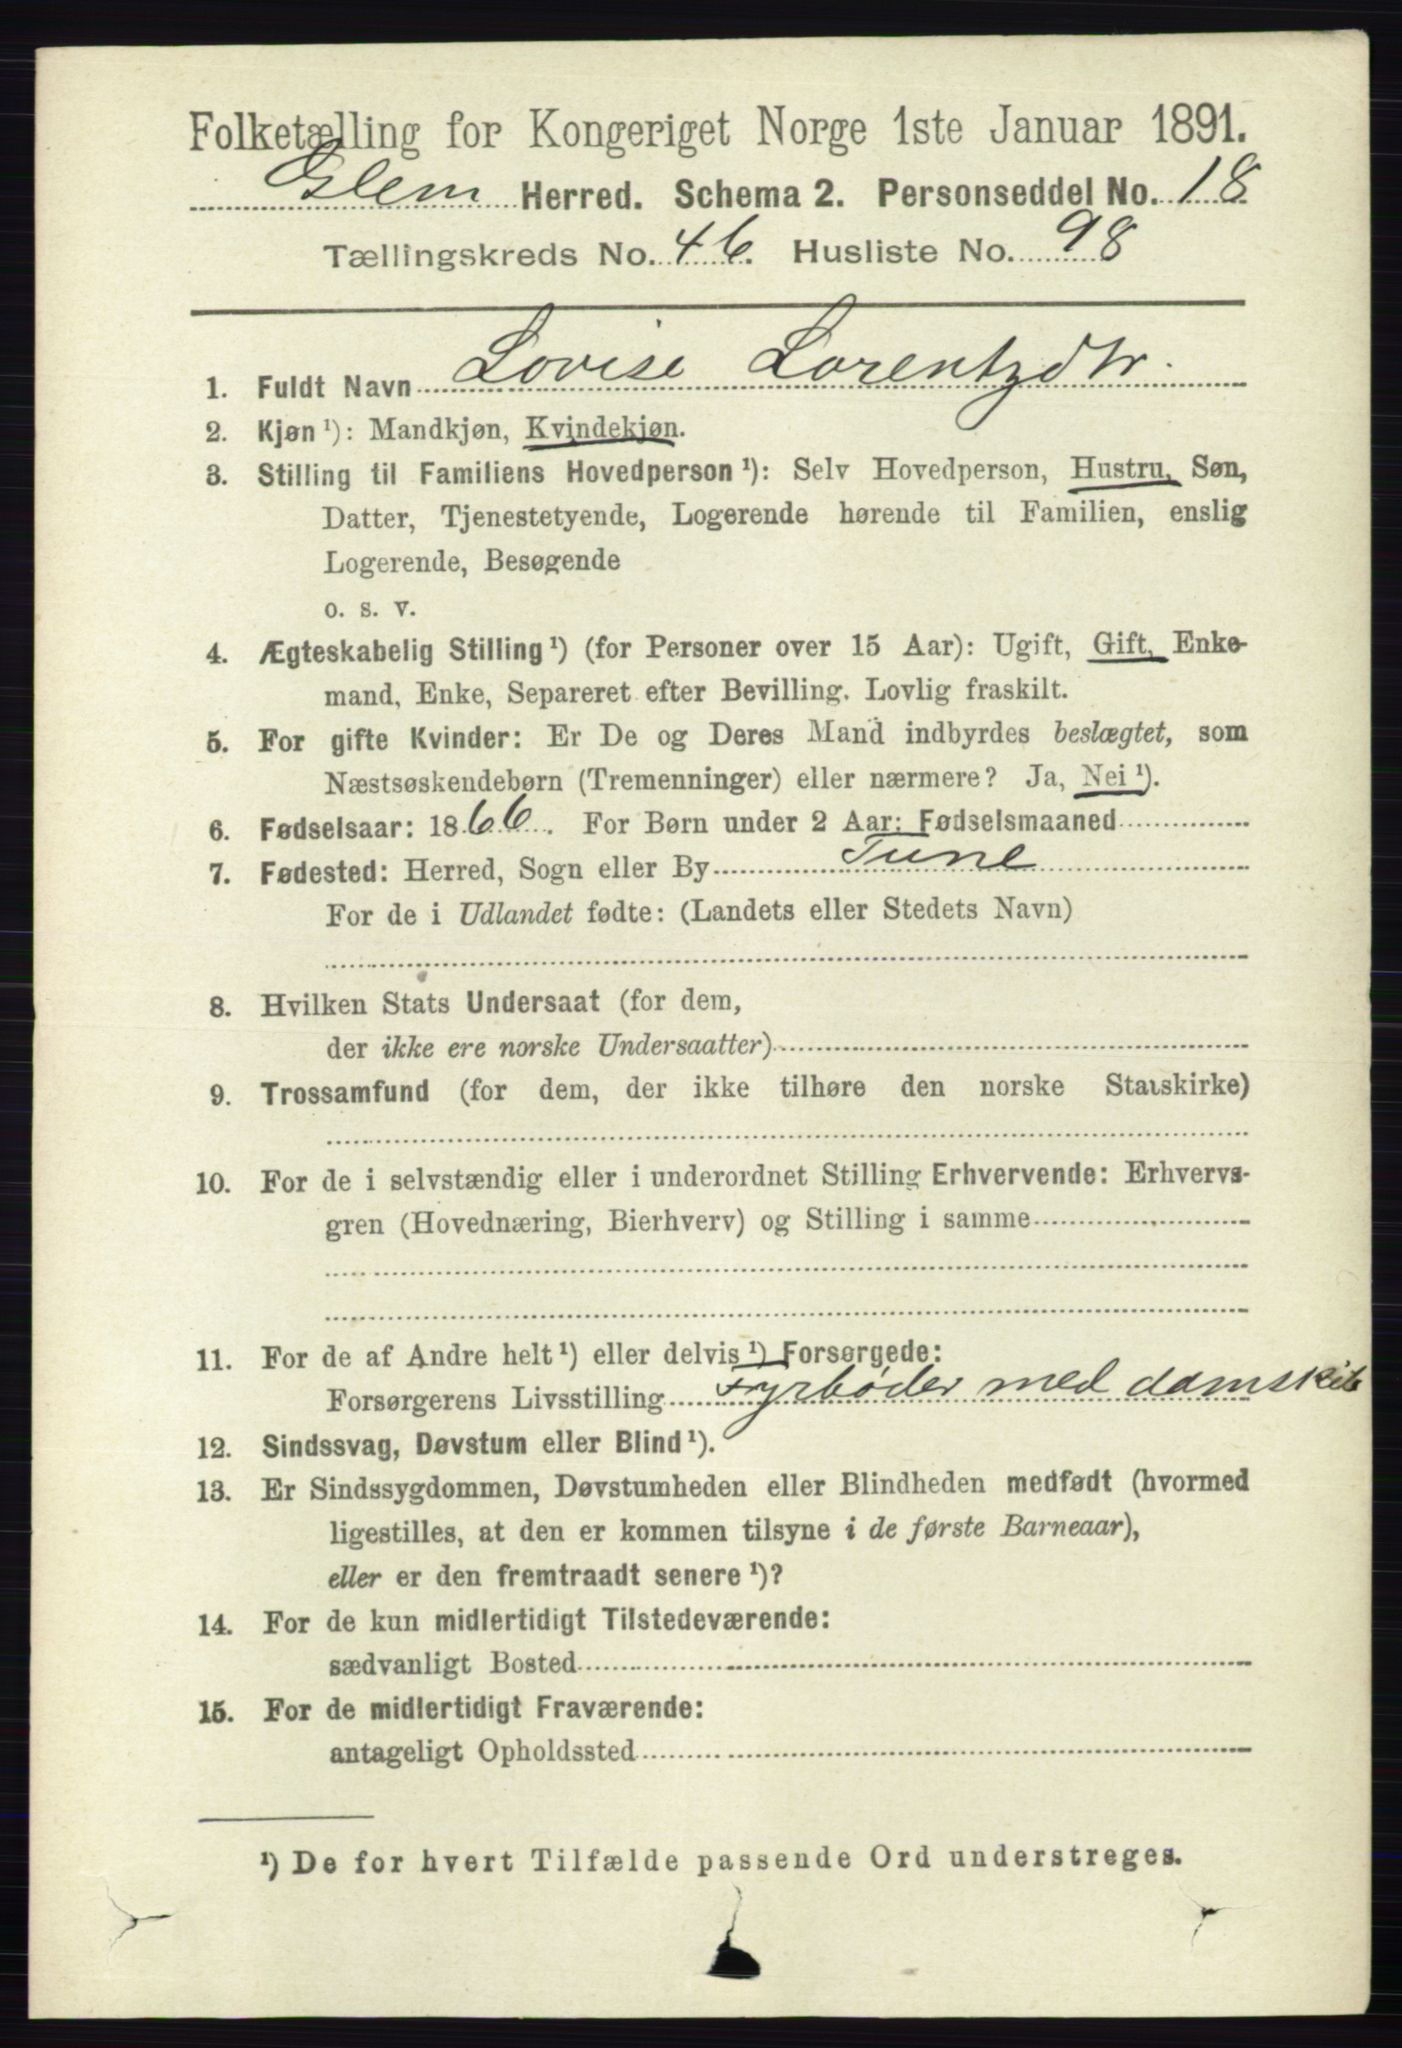 Folketælling for Kongeriget Norge 1ste Januar 1891.
Glem Herred. Schema 2. Personseddel No. 18
Tællingskreds No. 46. Husliste No. 98
1. Fuldt Navn Lovise Lorentzdtr.
2. Kjøn ¹): Mandkjøn, Kvindekjøn.
3. Stilling til Familiens Hovedperson ¹): Selv Hovedperson, Hustru, Søn,
Datter, Tjenestetyende, Logerende hørende til Familien, enslig
Logerende, Besøgende
o. s. v.
4. Ægteskabelig Stilling ¹) (for Personer over 15 Aar): Ugift, Gift, Enke-
mand, Enke, Separeret efter Bevilling. Lovlig fraskilt.
5. For gifte Kvinder: Er De og Deres Mand indbyrdes beslægtet, som
Næstsøskendebørn (Tremenninger) eller nærmere? Ja, Nei ¹).
6. Fødselsaar: 1866. For Børn under 2 Aar: Fødselsmaaned
7. Fødested: Herred, Sogn eller By Tune
For de i Udlandet fødte: (Landets eller Stedets Navn)
8. Hvilken Stats Undersaat (for dem,
der ikke ere norske Undersaatter)
9. Trossamfund (for dem, der ikke tilhøre den norske Statskirke)
10. For de i selvstændig eller i underordnet Stilling Erhvervende: Erhvervs-
gren (Hovednæring, Bierhverv) og Stilling i samme
11. For de af Andre helt ¹) eller delvis ¹) Forsørgede:
Forsørgerens Livsstilling Fyrbøder med damskib
12. Sindssvag, Døvstum eller Blind ¹).
13. Er Sindssygdommen, Døvstumheden eller Blindheden medfødt (hvormed
ligestilles, at den er kommen tilsyne i de første Barneaar),
eller er den fremtraadt senere ¹)?
14. For de kun midlertidigt Tilstedeværende:
sædvanligt Bosted
15. For de midlertidigt Fraværende:
antageligt Opholdssted
¹) De for hvert Tilfælde passende Ord understreges.